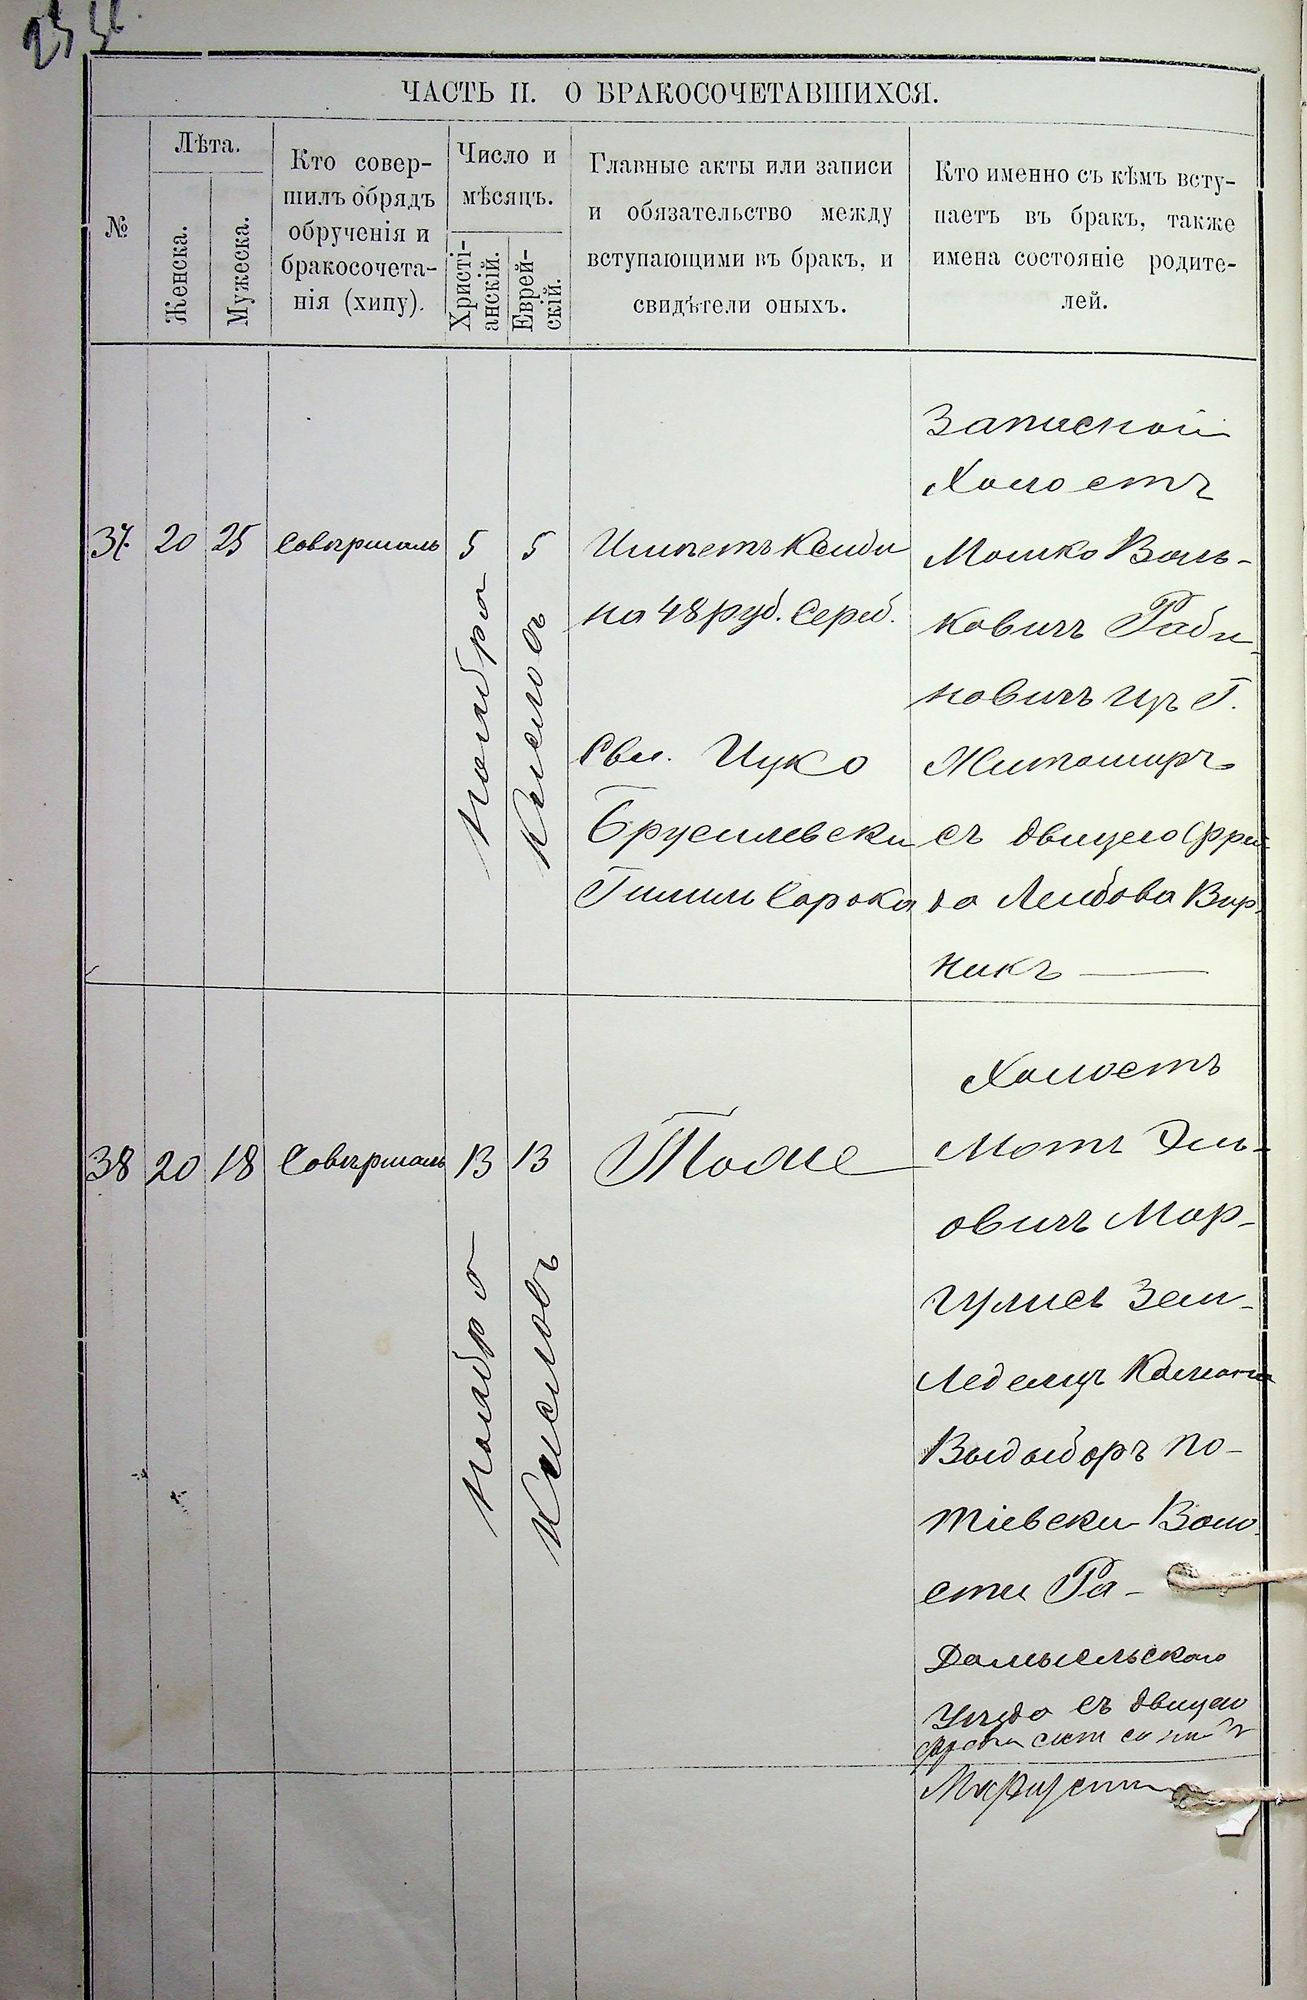 ЧАСТЬ II. О БРАКОСОЧЕТАВШИХСЯ.
№
Лѣта.
Женска.
Мужеска.
Кто совер-
шилъ обрядъ
обрученія и
бракосочета-
нія (хипу).
Число и
мѣсяцъ.
Христі-
анскій.
Еврей-
скій.
Главные акты или записи
и обязательство между
вступающими въ бракъ, и
свидѣтели оныхъ.
Кто именно съ кѣмъ всту-
паетъ въ бракъ, также
имена состояніе родите-
лей.
37 20 25 Совѣршаль 5 5
Ноября
Кислов
на 48 руб. Сереб.
Сви. Ицко
Брусилевски
Гилиль Сорока
Записной
Холостъ
Мошко Воль-
ковичъ Раби-
новичъ изъ Г.
Житомиръ
съ двицею Фрей
да Лейбова Вир-
никъ
38 20 18 Совѣршаль 13 13
Ноября
Кисловъ
Тоже
Холостъ
Мотъ Эль-
овичъ Мар-
гулисъ Зем-
Ледецъ
Выдыборъ По-
тіевски Воло
сти Ра-
Домысльского
Уѣзда съ двицею